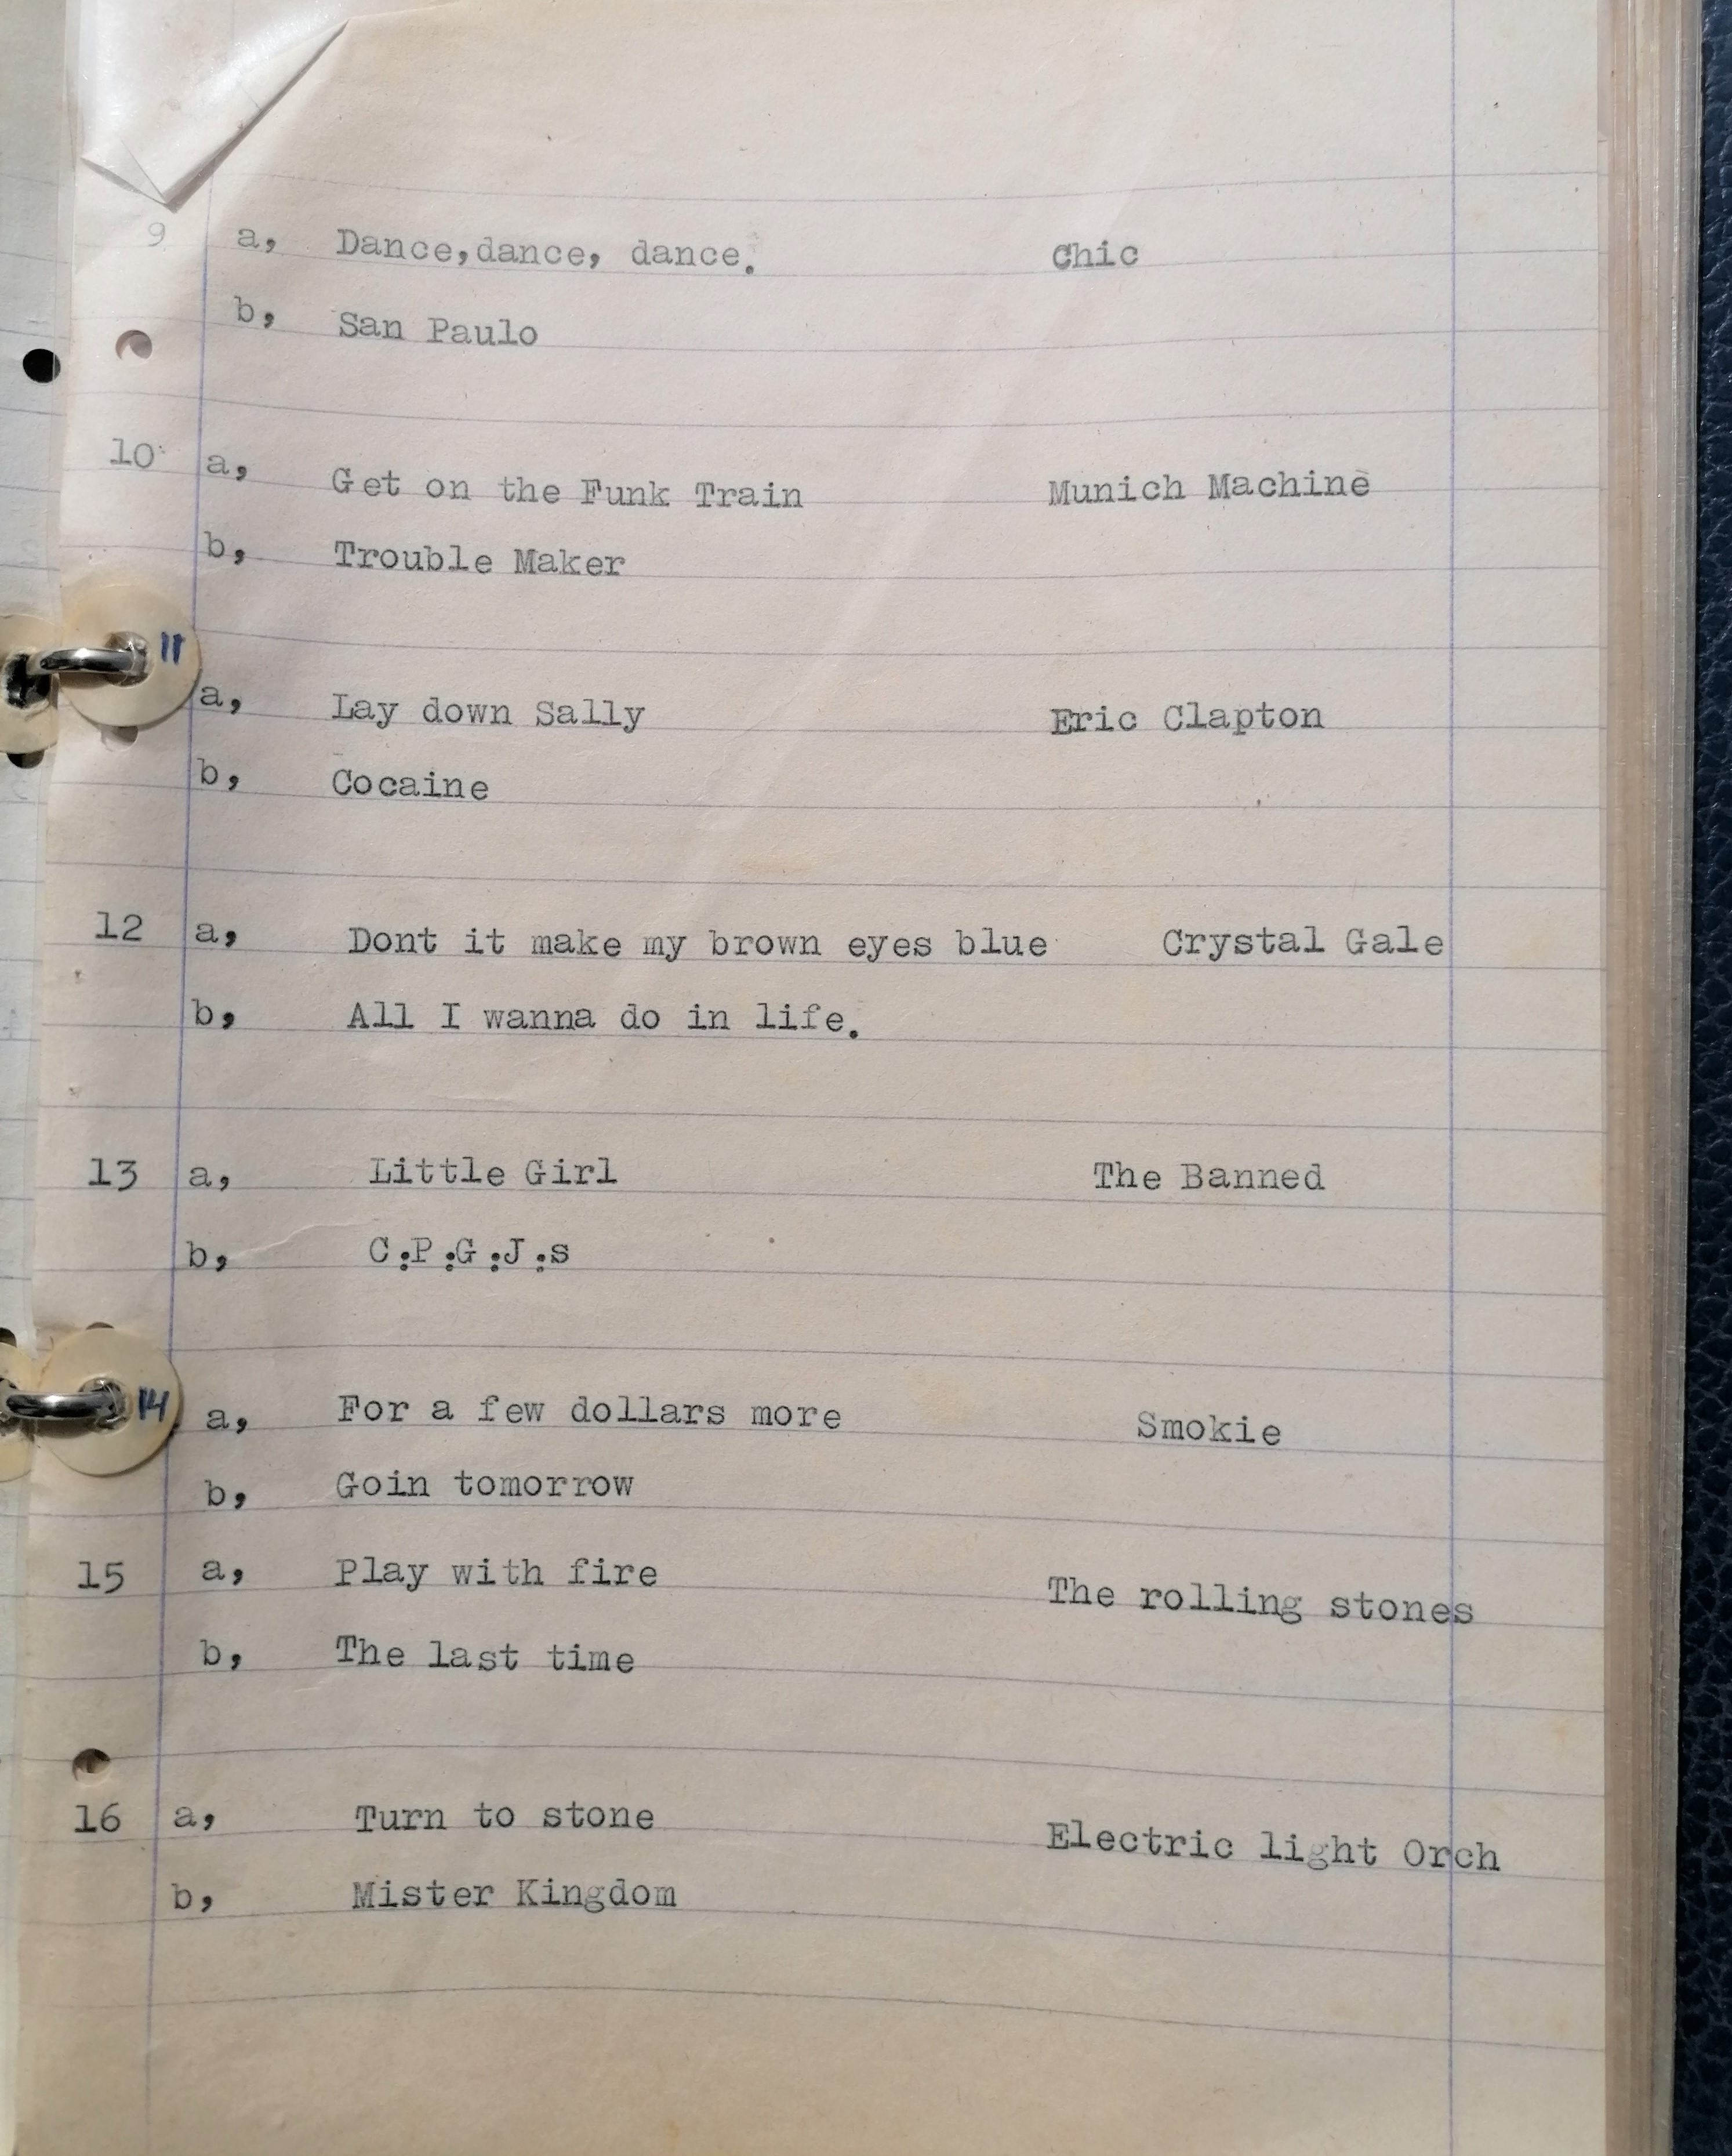 9 a, Dance,dance, dance. Chic
b, San Paulo
10 a, Get on the Funk Train Munich Machine
b, Trouble Maker
11
a, Lay down Sally Eric Clapton
b, Cocaine
12 a, Dont it make my brown eyes blue Crystal Gale
b, All I wanna do in life.
13 a, Little Girl The Banned
b, C:P:G:J:s
14
a, For a few dollars more Smokie
b, Goin tomorrow
15 a, Play with fire The rolling stones
b, The last time
16 a, Turn to stone Electric light Orch
b, Mister Kingdom